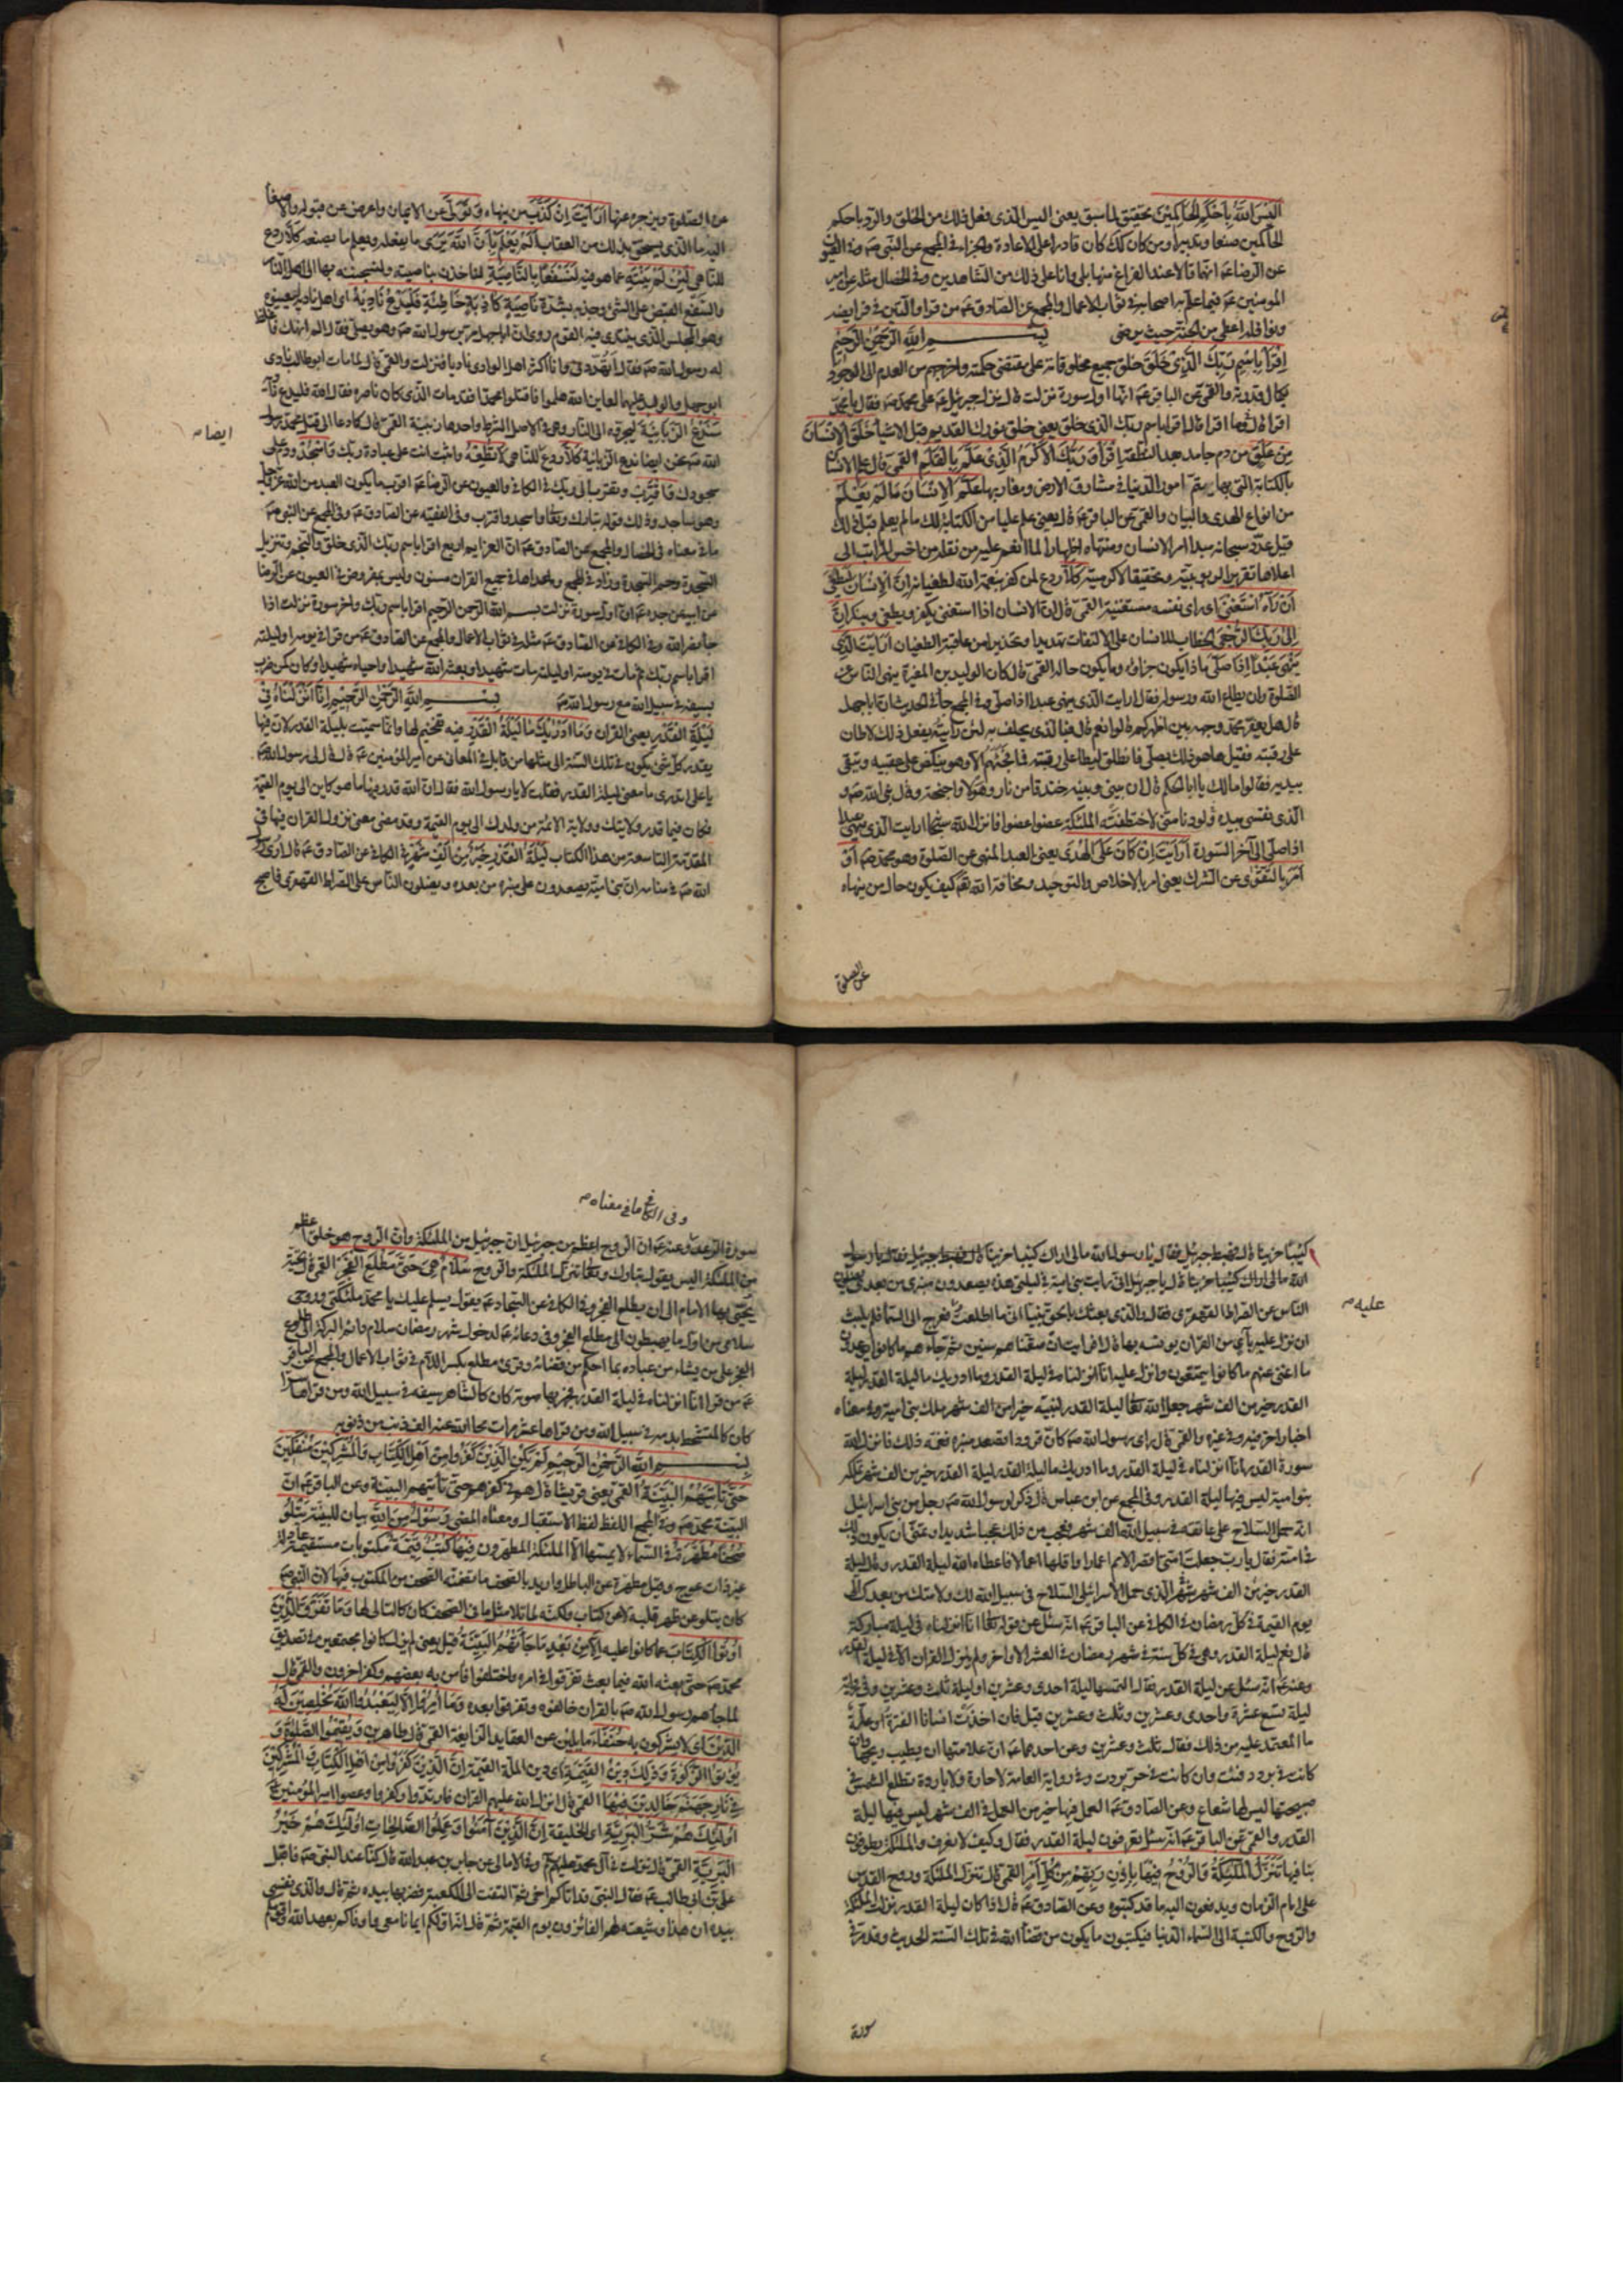 اَلَيْسَ اللّٰهُ بِاَحْكَمِ الْحَاكِمِيْنَ تحقيق لما سبق يعنى اليس الّذى فعل ذلك من الخلق والردّ باحكم
الحاكمين صنعا وتدبيرا ومن كان كك كان قادرا على الاعادة والجزاء فى المجمع عن النّبى صه وفى العيون
عن الرضا عم انّهما قالا عند الفراغ منها بلى وانا على ذلك من الشاهدين وفى الخصال مثله عن امير
المؤمنين عم فيما علّم به اصحابه فى ثواب الاعمال والمجمع عن الصّادق عم من قرا والتّين فى فرايضه
ونوافله اعطى من الجنّة حيث يرضى بسم الله الرّحمن الرّحيم
اِقْرَأْ بِاسْمِ رَبِّكَ الَّذِىْ خَلَقَ خلق جميع مخلوقاته على مقتضى حكمته واخرجهم من العدم الى الوجود
بكمال قدرته والقمى عن الباقر عم انّها اول سورة نزلت قال نزل جبرئيل عم على محمّد صه فقال يا محمّد
اقرا قال وما اقرا قال اقرا باسم ربك الّذى خلق يعنى خلق نورك القديم قبل الاشياء خَلَقَ الْاِنْسَانَ
مِنْ عَلَقٍ من دم جامد بعد النطفة اِقْرَأْ وَرَبُّكَ الْاَكْرَمُ الَّذِىْ عَلَّمَ بِالْقَلَمِ القمى قال علم الانسان
بالكتابة التى بها يتمّ امور الدّنيا فى مشارق الارض ومغاربها عَلَّمَ الْاِنْسَانَ مَا لَمْ يَعْلَمْ
من انواع الهدى والبيان والقمى عن الباقر عم قال يعنى علم عليا من الكتابة لك ما لم يعلم قبل ذلك
قيل عدّد سبحانه مبدا امر الانسان ومنتهاه اظهارا لما انعم عليه من نقله من اخس المراتب الى
اعلاها تقريرا لربوبيّته وتحقيقا لاكرميته كَلَّا ردع لمن كفر بنعمة الله لطغيانه اِنَّ الْاِنْسَانَ لَيَطْغٰى
اَنْ رَاٰهُ اسْتَغْنٰى اى راى نفسه مستغنية القمى قال ان الانسان اذا استغنى يكفر ويطغى وينكر اِنَّ
اِلٰى رَبِّكَ الرُّجْعٰى الخطاب للانسان على الالتفات تهديدا وتحذيرا من عاقبة الطغيان اَرَاَيْتَ الَّذِى
يَنْهٰى عَبْدًا اِذَا صَلّٰى ماذا يكون جزاؤه وما يكون حاله القمى قال كان الوليد بن المغيرة ينهى الناس عن
الصّلوة وان يطاع الله ورسوله فقال ارايت الذى ينهى عبدا اذا صلّى وفى المجمع جاء فى الحديث ان اباجهل
قال هل يعفر محمّد وجهه بين اظهركم قالوا نعم قال فبالذى يحلف به لئن رايته يفعل ذلك لاطان
على رقبته فقيل ها هو ذلك يصلّى فانطلق ليطا على رقبته فما فجئهم الّا وهو ينكص على عقبيه ويتّقى
بيديه فقالوا مالك يا ابا الحكم قال ان بينى وبينه خندقا من نار وهولا واجنحة وقال نبى الله صه و
الّذى نفسى بيده لو دنا منى لاختطفته الملئكة عضوا عضوا فانزل الله سبحانه ارايت الّذى ينهى عبدا
اذا صلّى الى آخر السّورة اَرَاَيْتَ اِنْ كَانَ عَلَى الْهُدٰى يعنى العبد المنهى عن الصّلوة وهو محمّد صه اَوْ
اَمَرَ بِالتَّقْوٰى عن الشرك يعنى امر بالاخلاص والتوحيد ومخافة الله تعم كيف يكون حال من ينهاه
عن الصلوة
عن الصّلوة ويزجره عنها اَرَاَيْتَ اِنْ كَذَّبَ من ينهاه وَتَوَلّٰى عن الايمان واعرض عن قبوله والاصغاء
اليه ما الّذى يستحقّ بذلك من العقاب اَلَمْ يَعْلَمْ بِاَنَّ اللّٰهَ يَرٰى ما يفعله ويعلم ما يصنعه كَلَّا ردع
للنّاهى لَئِنْ لَمْ يَنْتَهِ عما هو فيه لَنَسْفَعًا بِالنَّاصِيَةِ لناخذن بناصيته ولنسحبنّه بها الى النّار
والسّفع القبض على الشئ وجذبه بشدّة نَاصِيَةٍ كَاذِبَةٍ خَاطِئَةٍ فَلْيَدْعُ نَادِيَهُ اى اهل ناديه ليعينوه
وهو المجلس الّذى ينتدى فيه القوم روى ان اباجهل مرّ برسول الله صه وهو يصلّى فقال الم انهك فاغلظ
له رسول الله صه فقال اتهدّدنى وانا اكثر اهل الوادى ناديا فنزلت والقمى قال لما مات ابوطالب نادى
ابوجهل والوليد عليهما لعاين الله هلموا فاقتلوا محمّدا فقد مات الّذى كان ناصره فقال الله فليدع ناديه
سَنَدْعُ الزَّبَانِيَةَ ليجروه الى النّار وهى فى الاصل الشرط واحدها زبنية القمى قال كما دعا الى قتل محمّد رسول
الله صه نحن ايضا ندع الزّبانية كَلَّا ردع للنّاهى لَا تُطِعْهُ واثبت انت على عبادة ربّك وَاسْجُدْ ودم على
ايضا م
سجودك وَاقْتَرِبْ وتقرب الى ربّك فى الكافى والعيون عن الرضا عم اقرب ما يكون العبد من الله عزّ وجلّ
وهو ساجد وذلك قوله تبارك وتعا واسجد واقترب وفى الفقيه عن الصّادق عم وفى المجمع عن النّبى صه
ما فى معناه فى الخصال والمجمع عن الصّادق عم انّ العزايم اربع اقرا باسم ربّك الّذى خلق والنّجم وتنزيل
السّجدة وحم السّجدة وزاد فى المجمع وما عداها فى جميع القران مسنون وليس بمفروض فى العيون عن الرضا
عن ابيه عن جده عم ان اول سورة نزلت بسم الله الرّحمن الرّحيم اقرا باسم ربّك واخر سورة نزلت اذا
جاء نصر الله وفى الكافى عن الصّادق عم مثله فى ثواب الاعمال والمجمع عن الصّادق عم من قرا فى يومه او ليلته
اقرا باسم ربك ثم مات فى يومه او ليلته مات شهيدا وبعثه الله شهيدا واحياه شهيدا وكان كمن ضرب
بسيفه فى سبيل الله مع رسول الله صه بسم اللّٰه الرّحمن الرّحيم اِنَّا اَنْزَلْنَاهُ فِىْ
لَيْلَةِ الْقَدْرِ يعنى القران وَمَا اَدْرٰىكَ مَا لَيْلَةُ الْقَدْرِ فيه تفخيم لها وانّما سميت بليلة القدر لان فيها
يقدر كلّ شئ يكون فى تلك السّنة الى مثلها من قابل فى المعانى عن امير المؤمنين عم قال قال لى رسول الله صه
يا على اتدرى ما معنى ليلة القدر فقلت لا يا رسول الله فقال ان الله قدر فيها ما هو كاين الى يوم القيمة
فكان فيما قدر ولايتك وولاية الائمة من ولدك الى يوم القيمة وقد مضى معنى نزول القران فيها فى
المقدّمة التاسعة من هذا الكتاب لَيْلَةُ الْقَدْرِ خَيْرٌ مِنْ اَلْفِ شَهْرٍ فى الكافى عن الصّادق عم قال ارى رسول
الله صه فى منامه ان بنى اميّة يصعدون على منبره من بعده ويضلون النّاس على الصّراط القهقرى فاصبح
كئيبا حزينا قال فهبط جبرئيل فقال يا رسول الله مالى اراك كئيبا حزينا
الله مالى اراك كئيبا حزينا قال يا جبرئيل انّى رايت بنى اميّة فى ليلتى هذه يصعدون منبرى من بعدى يضلون
النّاس عن الصّراط القهقرى فقال والّذى بعثك بالحق نبيا انّى ما اطلعت فعرج الى السّماء فلم يلبث
عليه م
ان نزل عليه باٰى من القران يونسه بها قال افرايت ان متّعناهم سنين ثم جاءهم ما كانوا يوعدون
ما اغنى عنهم ما كانوا يمتعون وانزل عليه انّا انزلناه فى ليلة القدر وما ادريك ما ليلة القدر ليلة
القدر خير من الف شهر جعل الله تعا ليلة القدر لنبيّه خيرا من الف شهر ملك بنى امية وفى معناه
اخبار اخر فيه وفى غيره والقمى قال راى رسول الله صه كانّ قرودا تصعد منبره فغمّه ذلك فانزل الله
سورة القدر انّا انزلناه فى ليلة القدر وما ادريك ما ليلة القدر ليلة القدر خير من الف شهر تملكه
بنو امية ليس فيها ليلة القدر وفى المجمع عن ابن عباس قال ذكر لرسول الله صه رجل من بنى اسرائيل
انّه حمل السّلاح على عاتقه فى سبيل الله الف شهر فعجب من ذلك عجبا شديدا وتمنّى ان يكون ذلك
فى امته فقال يا ربّ جعلت امّتى اقصر الامم اعمارا واقلها اعمالا فاعطاه الله ليلة القدر وقال ليلة
القدر خير من الف شهر الّذى حمل الاسرائيلى السّلاح فى سبيل الله لك ولامتك من بعدك الى
يوم القيمة فى كلّ رمضان فى الكافى عن الباقر عم انّه سئل عن قوله تعا انّا انزلناه فى ليلة مباركة
قال نعم ليلة القدر وهى فى كلّ سنة فى شهر رمضان فى العشر الاواخر ولم ينزل القران الّا فى ليلة القدر
وعنه عم انّه سئل عن ليلة القدر فقال التمسها ليلة احدى وعشرين او ليلة ثلث وعشرين وفى رواية
ليلة تسع عشرة واحدى وعشرين وثلث وعشرين قيل فان اخذت انسانا الفترة او علّة
ما المعتمد عليه من ذلك فقال ثلث وعشرين وعن احدهما عم انّ علامتها ان يطيب ريحها وان
كانت فى برد دفئت وان كانت فى حرّ بردت وفى رواية العامة لا حارة ولا باردة تطلع الشمس فى
صبيحتها ليس لها شعاع وعن الصّادق عم العمل فيها خير من العمل فى الف شهر ليس فيها ليلة
القدر والقمى عن الباقر عم انّه سئل تعرفون ليلة القدر فقال وكيف لا نعرف والملئكة يطوفون
بنا فيها تَنَزَّلُ الْمَلٰئِكَةُ وَالرُّوْحُ فِيْهَا بِاِذْنِ رَبِّهِمْ مِنْ كُلِّ اَمْرٍ القمى قال تنزل الملئكة وروح القدس
على امام الزمان ويدفعون اليه ما قد كتبوه وعن الصّادق عم قال اذا كان ليلة القدر نزلت الملئكة
والرّوح والكتبة الى السّماء الدّنيا فيكتبون ما يكون من قضاء الله فى تلك السّنة الحديث وقد مرّ فى
سورة
وفى الكافى ما فى معناه م
سورة الرعد وعنه عم ان الرّوح اعظم من جبرئيل ان جبرئيل من الملئكة وان الرّوح هو خلق اعظم
من الملئكة اليس يقول تبارك وتعا تنزل الملئكة والرّوح سَلَامٌ هِىَ حَتّٰى مَطْلَعِ الْفَجْرِ القمى قال تحيّة
يحيّى بها الامام الى ان يطلع الفجر وفى الكافى عن السّجاد عم يقول يسلم عليك يا محمّد ملئكتى وروحى
سلامى من اول ما يهبطون الى مطلع الفجر وفى دعائه عم لدخول شهر رمضان سلام دائم البركة الى طلوع
الفجر على من يشاء من عباده بما احكم من قضائه وقرئ مطلع بكسر اللّام فى ثواب الاعمال والمجمع عن الباقر
عم من قرا انّا انزلناه فى ليلة القدر يجهر بها صوته كان كالشاهر سيفه فى سبيل الله ومن قراها سرا
كان كالمتشحط بدمه فى سبيل الله ومن قراها عشر مرات محا الله عنه الف ذنب من ذنوبه
بسم اللّٰه الرّحمن الرّحيم لَمْ يَكُنِ الَّذِيْنَ كَفَرُوْا مِنْ اَهْلِ الْكِتَابِ وَالْمُشْرِكِيْنَ مُنْفَكِّيْنَ
حَتّٰى تَاْتِيَهُمُ الْبَيِّنَةُ القمى يعنى قريشا قال هم فى كفرهم حتى تأتيهم البيّنة وعن الباقر عم انّ
البيّنة محمّد صه وفى المجمع اللفظ لفظ الاستقبال ومعناه المضى رَسُوْلٌ مِنَ اللّٰهِ بيان للبيّنة يَتْلُوْ
صُحُفًا مُطَهَّرَةً فى السّماء لا يمسّها الّا الملئكة المطهّرون فِيْهَا كُتُبٌ قَيِّمَةٌ مكتوبات مستقيمة عادلة
غير ذات عوج وقيل مطهّرة عن الباطل واريد بالصّحف ما تضمّنه الصّحف من المكتوب فيها لان النّبى صه
كان يتلو عن ظهر قلبه لا عن كتاب ولكنّه لما تلا مثل ما فى الصّحف كان كالتالى لها وَمَا تَفَرَّقَ الَّذِيْنَ
اُوتُوا الْكِتَابَ عما كانوا عليه اِلَّا مِنْ بَعْدِ مَا جَاءَتْهُمُ الْبَيِّنَةُ قيل يعنى لم يزل كانوا مجتمعين فى تصديق
محمّد صه حتى بعثه الله فلما بعث تفرّقوا فى امره واختلفوا فامن به بعضهم وكفر اخرون والقمى قال
لما جاءهم رسول الله صه بالقران خالفوه وتفرقوا بعده وَمَا اُمِرُوْا اِلَّا لِيَعْبُدُوا اللّٰهَ مُخْلِصِيْنَ لَهُ
الدِّيْنَ اى لا يشركون به حُنَفَاءَ مايلين عن العقايد الزايغة القمى قال طاهرين وَيُقِيْمُوا الصَّلٰوةَ وَ
يُؤْتُوا الزَّكٰوةَ وَذٰلِكَ دِيْنُ الْقَيِّمَةِ اى دين الملّة القيّمة اِنَّ الَّذِيْنَ كَفَرُوْا مِنْ اَهْلِ الْكِتَابِ وَالْمُشْرِكِيْنَ
فِىْ نَارِ جَهَنَّمَ خَالِدِيْنَ فِيْهَا القمى قال انزل الله عليهم القران فارتدّوا وكفروا وعصوا امير المؤمنين عم
اُولٰئِكَ هُمْ شَرُّ الْبَرِيَّةِ اى الخليقة اِنَّ الَّذِيْنَ اٰمَنُوْا وَعَمِلُوا الصَّالِحَاتِ اُولٰئِكَ هُمْ خَيْرُ
الْبَرِيَّةِ القمى قال نزلت فى آل محمّد عليهم وفى الامالى عن جابر بن عبد الله قال كنّا عند النّبى صه فاقبل
على بن ابى طالب عم فقال النّبى قد اتاكم اخى ثم التفت الى الكعبة فضربها بيده ثم قال والّذى نفسى
بيده ان هذا وشيعته لهم الفائزون يوم القيمة ثمّ قال انّه اوّلكم ايمانا معى واوفاكم بعهد الله واقومكم